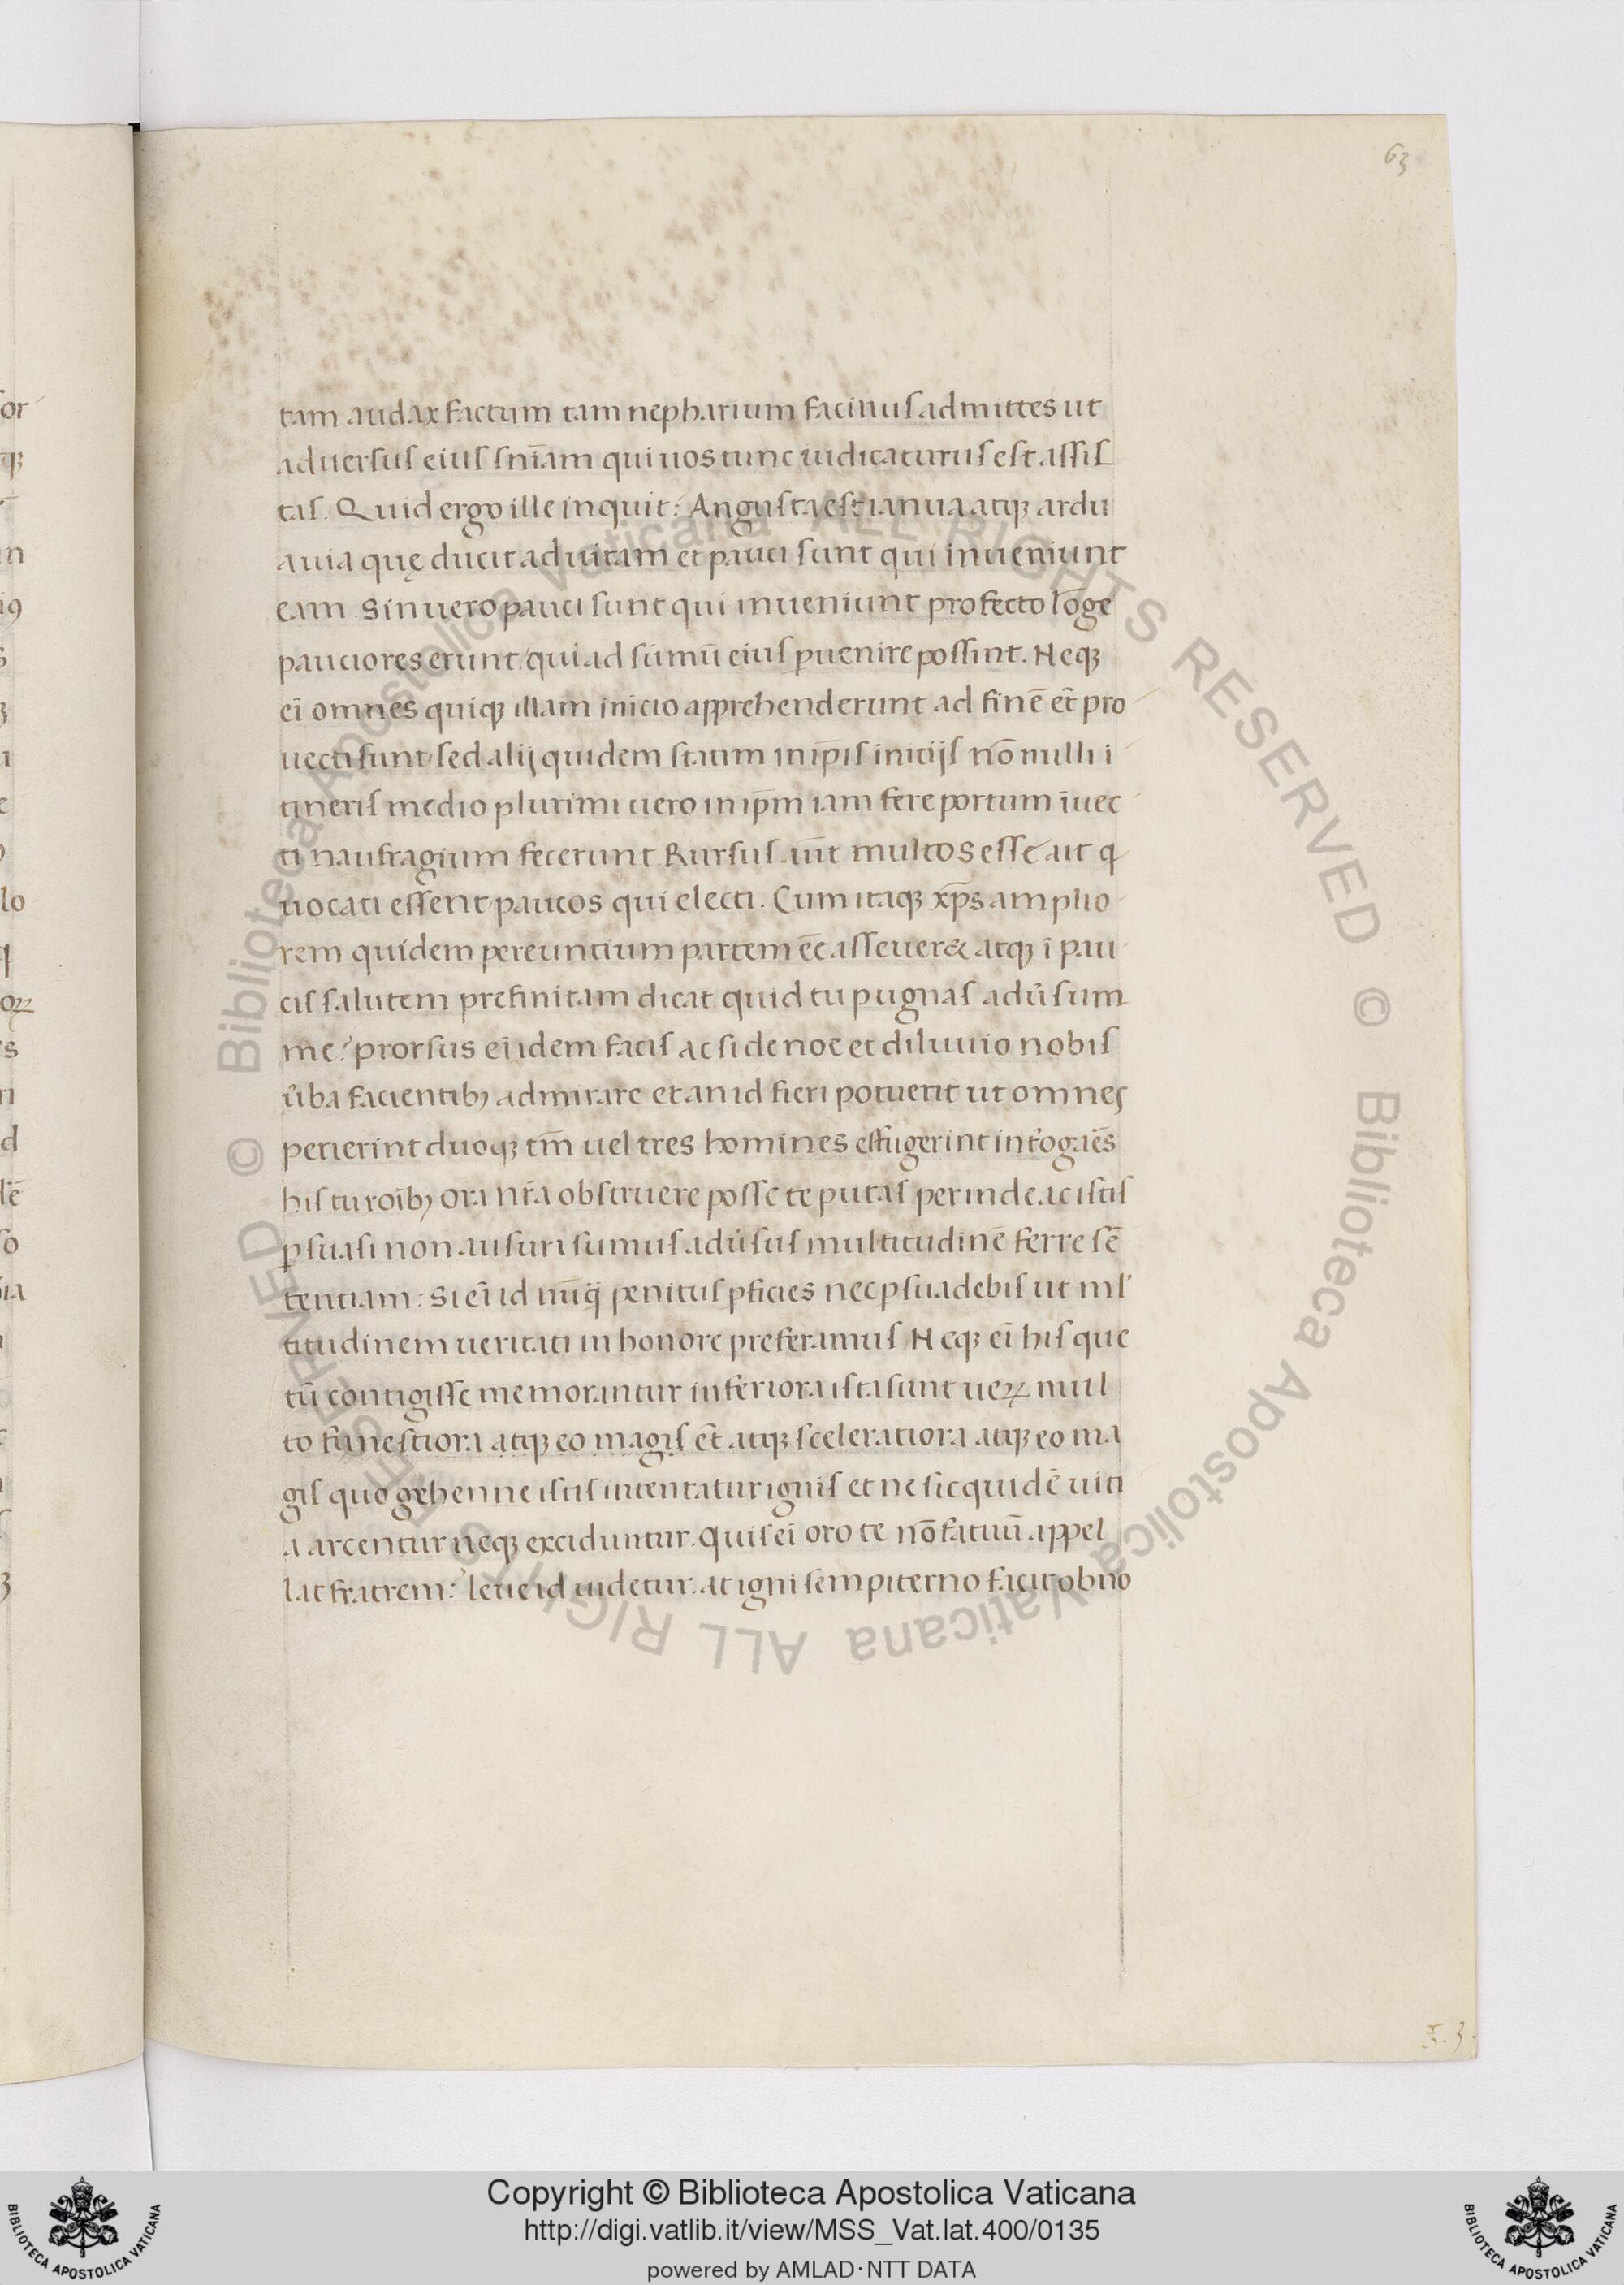 63
tam audax factum tam nepharium facinus admittes ut
adversus eius sn̄iam qui uos tunc iudicaturus est assis
tas. Quid ergo ille inquit: Angusta est ianua atq₃ ardu
a uia quę ducit ad uitam et pauci sunt qui inueniunt
eam. Sin uero pauci sunt qui inueniunt profecto lōge
pauciores erunt qui ad sūmū eius ꝑuenire possint. Neq₃
eī omnes quiq₃ illam inicio apprehenderunt ad finē et̄ pro
uecti sunt sed alij quidem statim in ip̄is initijs nō nulli i
tineris medio plurimi uero in ip̄m iam fere portum īuec
ti naufragium fecerunt. Rursus . multos esse ait q
uocati essent paucos qui electi. Cum itaq₃ xp̄s amplio
rem quidem pereuntium partem ēc̄ asseuer& atq₃ ī pau
cis salutem prefinitam dicat quid tu pugnas adūsum
me? prorsus eī idem facis ac si de noe et diluuio nobis
ūba facientib; admirare et an id fieri potuerit ut omnes
perierint duoq₃ tm̄ uel tres homines effugerint int̄ogās
his tu roīb; ora nr̄a obstruere posse te putas perinde ac istis
ꝑsuasi non ausuri sumus adūsus multitudinē ferre sē
tentiam: Si eī id nūq̄ penitus ꝑficies nec ꝑsuadebis ut ml'
titudinem ueritati in honore preferamus. Neq₃ eī his que
tū contigisse memorantur inferiora ista sunt ueꝝ mul
to funestiora atq₃ eo magis et̄ atq₃ sceleratiora atq₃ eo ma
gis quo gehenne istis intentatur ignis et ne sic quidē uiti
a arcentur neq₃ exciduntur. Quis eī oro te nō fatuū appel
lat fratrem? leue id uidetur. at igni sempiterno facit obno
5.3.
Copyright © Biblioteca Apostolica Vaticana
http://digi.vatlib.it/view/MSS_Vat.lat.400/0135
powered by AMLAD·NTT DATA
BIBLIOTECA APOSTOLICA VATICANA
BIBLIOTECA APOSTOLICA VATICANA
© Biblioteca Apostolica Vaticana ALL RIGHTS RESERVED © Biblioteca Apostolica Vaticana ALL RIGHTS RESERVED